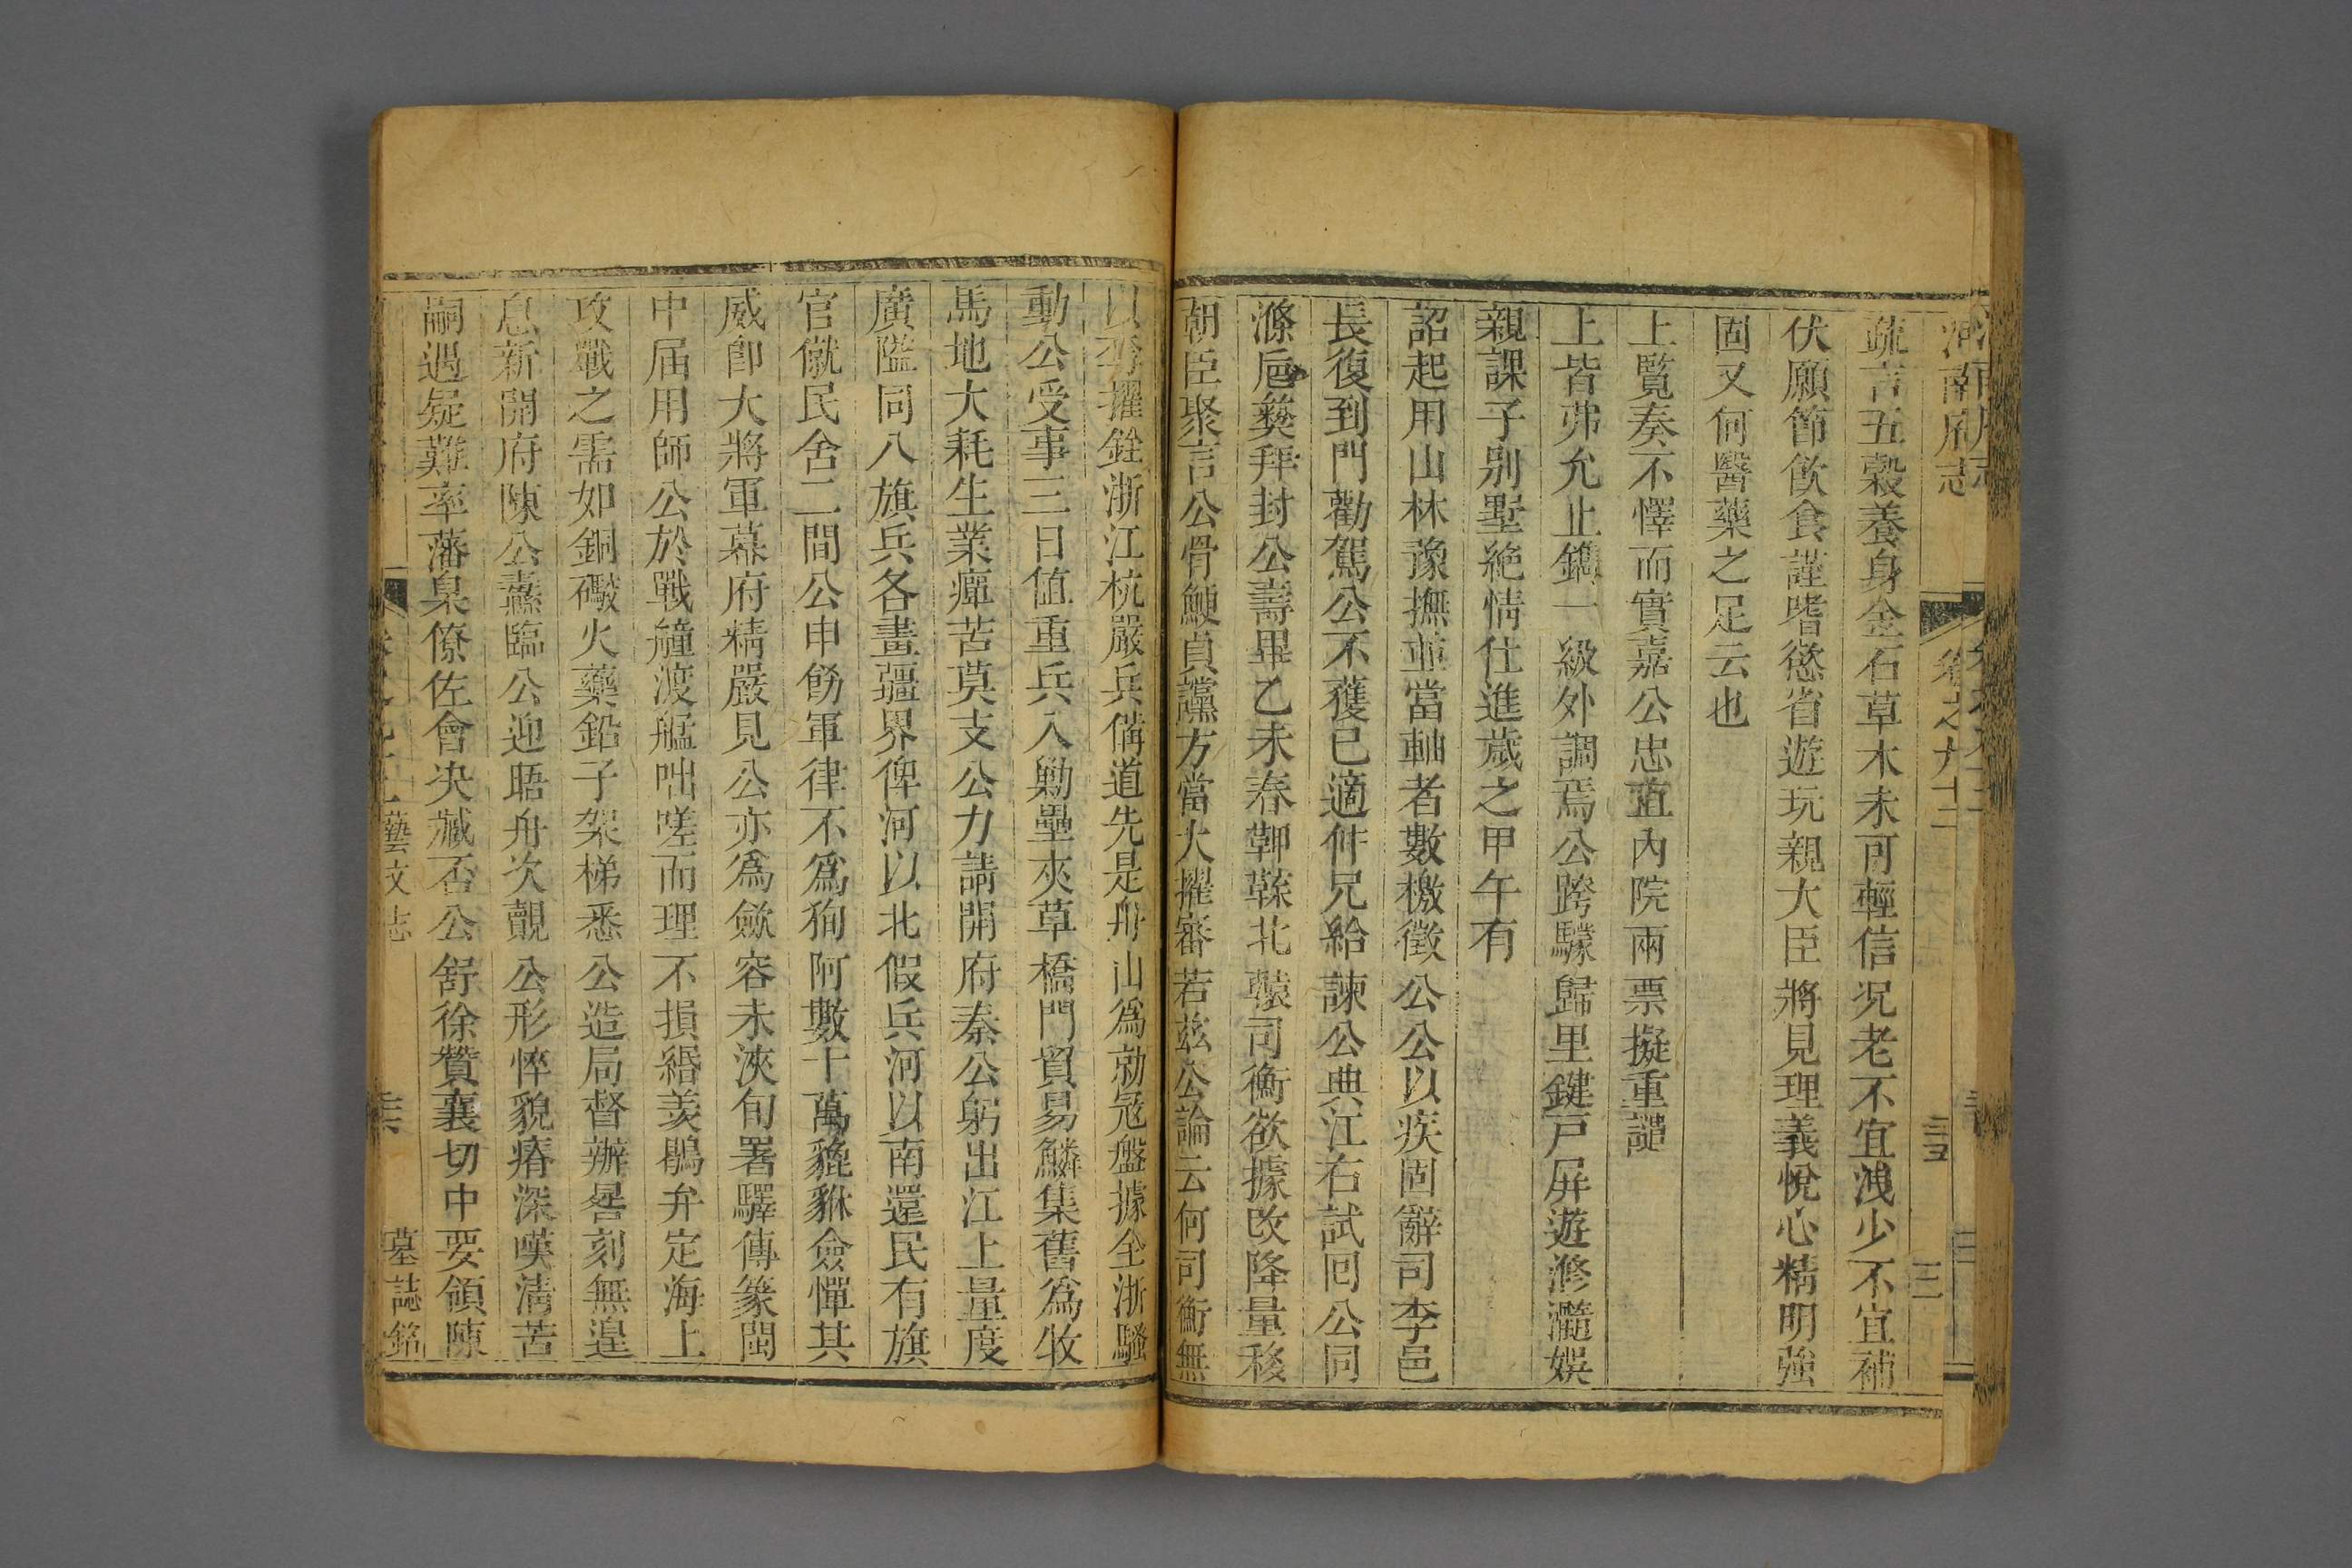 河南府志
卷之九十二
疏言五穀養身金石草木未可輕信况老不宜洩少不宜補
伏願節飲食謹嗜慾省遊玩親大臣將見理義悅心精明強
固又何醫藥之足云也
上覽奏不懌而實嘉公忠直內院兩票擬重譴
上皆弗允止鐫一級外調焉公跨騾歸里鍵戸屏遊滫瀡娛
親課子别墅絶情仕進歲之甲午有
詔起用山林豫撫並當軸者數檄徵公公以疾固辭司李邑
長復到門勸駕公不獲已適仲兄給諫公典江右試囘公同
滌巵㷼拜封公壽畢乙未春鞹鞹北轅司衡欲據改降量移
朝臣聚言公骨鯁貞讜方當大擢審若兹公論云何司衡無
以奪擢銓浙江杭嚴兵備道先是舟山爲勍冦盤據全浙騷
動公受事三日値重兵入勦壘夾草橋門貿昜鱗集舊爲牧
馬地大耗生業瘅苦莫支公力請開府秦公躬出江上量度
廣隘同八旗兵各畫疆界俾河以北假兵河以南還民有旗
官僦民舍二間公申飭軍律不爲狥阿數十萬貔貅僉憚其
威卽大將軍幕府精嚴見公亦爲歛容未浹旬署驛傳篆閩
中届用師公於戰艟渡艋咄嗟而理不損緡羡鵑弁定海上
攻戰之需如銅礮火藥鉛子架梯悉公造局督辦晷刻無遑
息新開府陳公燾臨公迎晤舟次覿公形悴貌瘠深嘆清苦
嗣遇疑難率藩臬僚佐會决臧否公舒徐贊襄切中要領陳
藝文志
墓誌銘